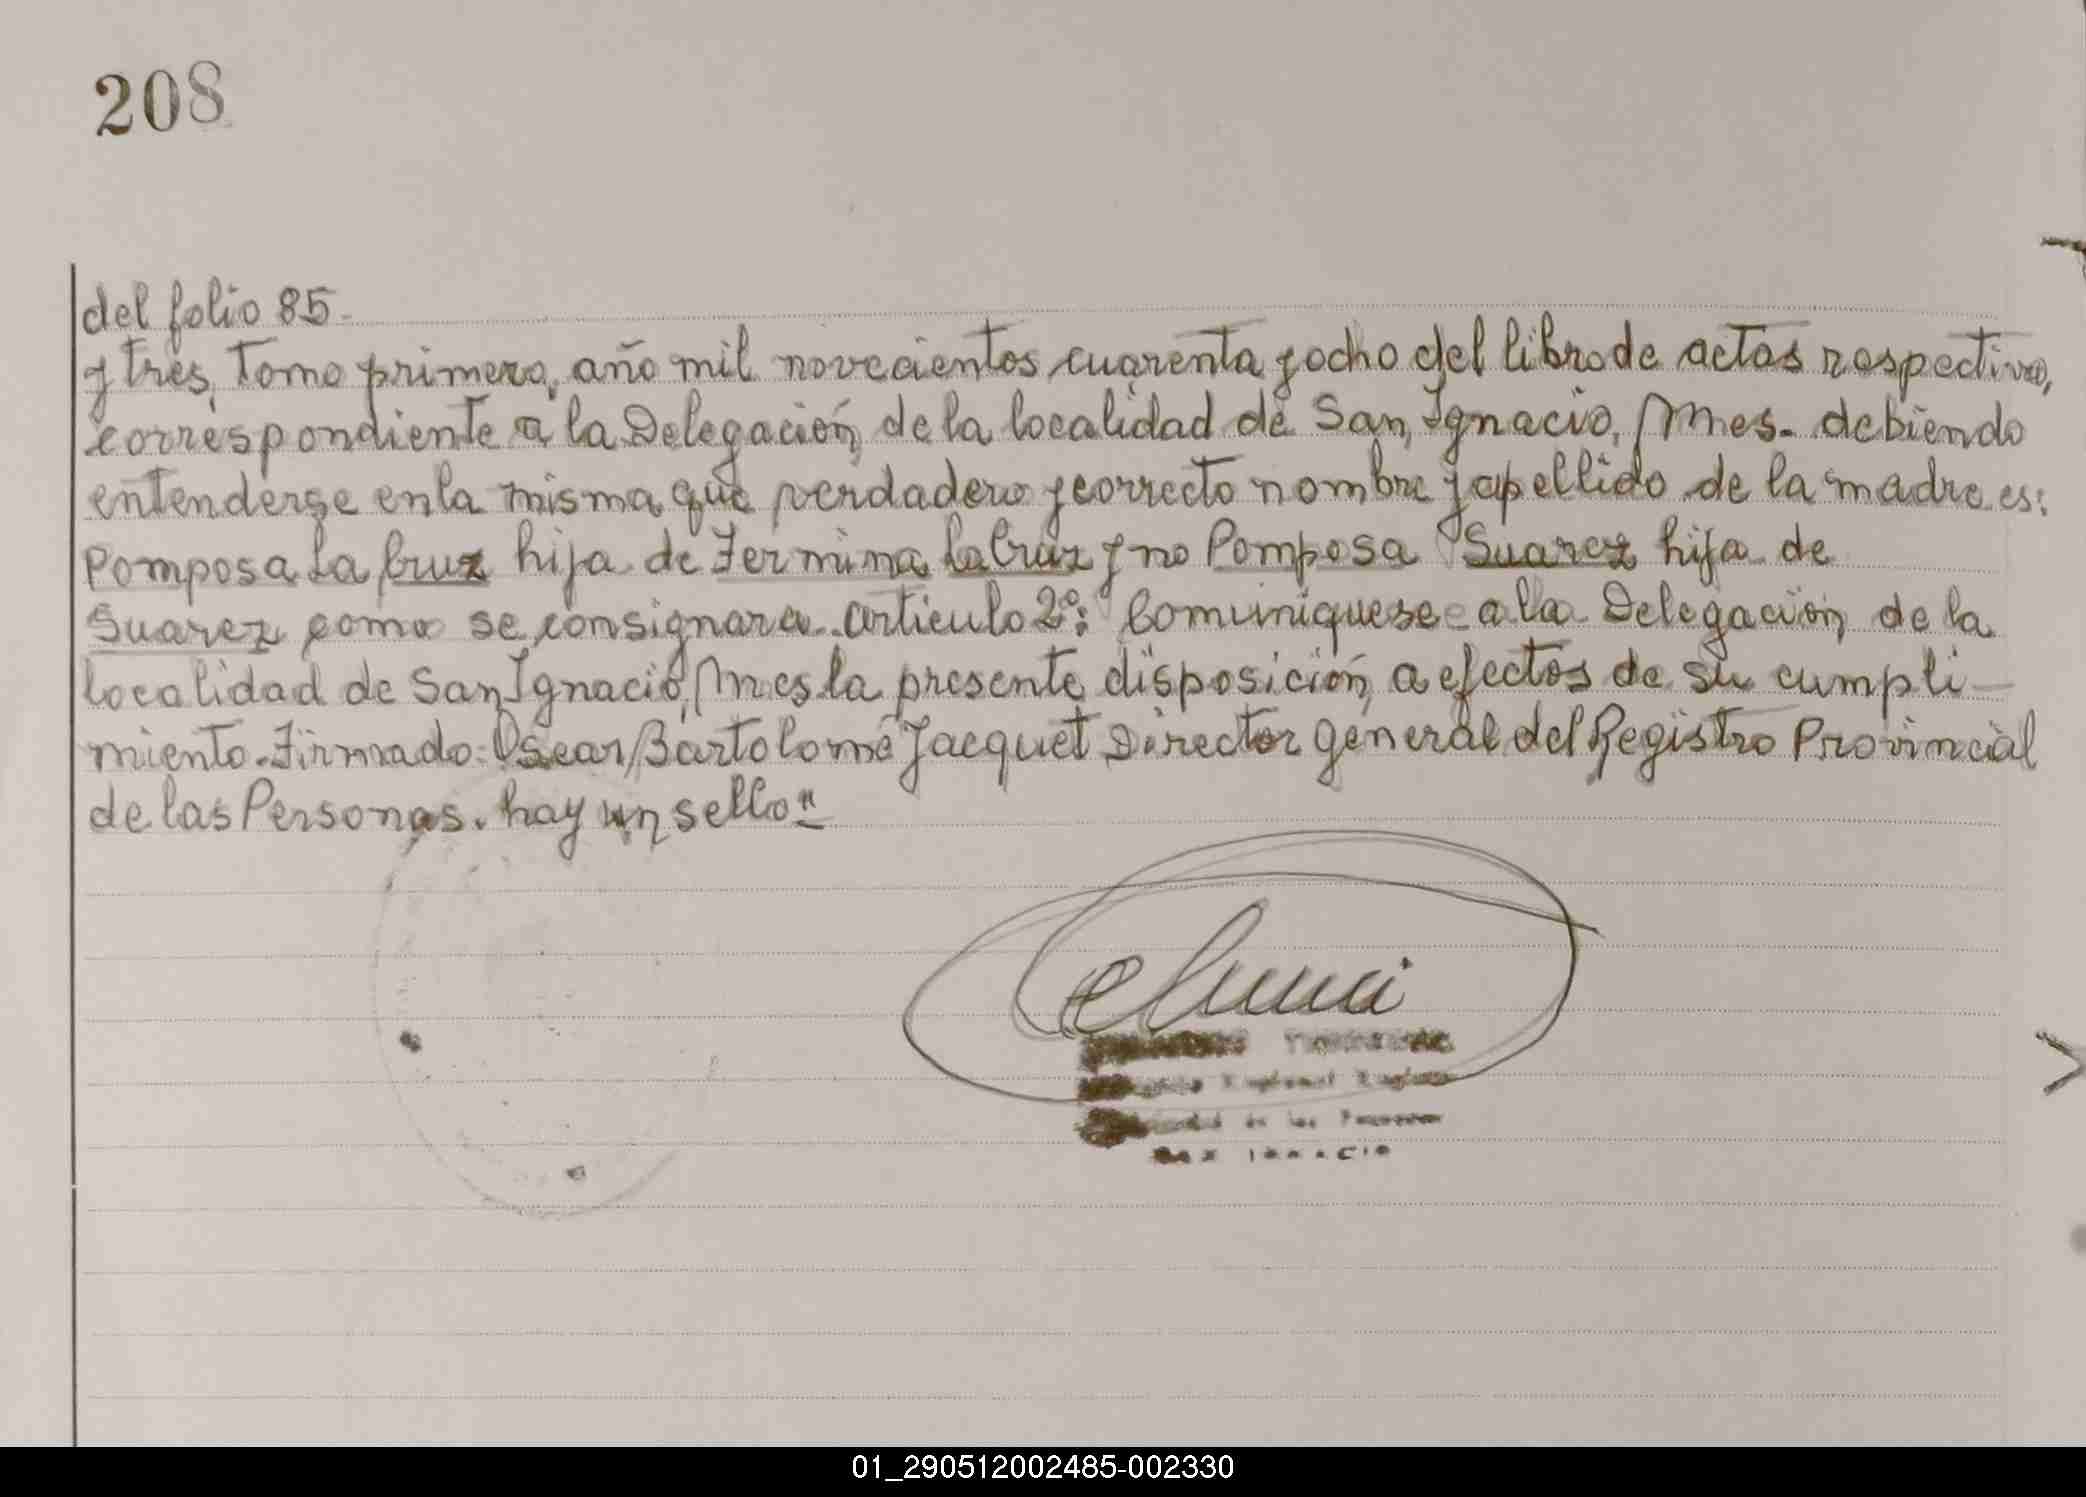 208
del folio 85-
y tres, Tomo primero, año mil novecientos cuarenta y ocho del libro de actas respectivo,
correspondiente a la Delegación de la localidad de San Ignacio, Mnes. debiendo
entenderse en la misma que verdadero y correcto nombre y apellido de la madre es:
Pomposa La Cruz hija de Fermina La Cruz y no Pomposa Suarez hija de
Suarez como se consignara. articulo 2º: Comuniquese a la Delegación de la
localidad de San Ignacio, Mnes la presente disposición a efectos de su cumpli-
miento. Firmado: Oscar Bartolomé Jacquet Director general del Registro Provincial
de las Personas. hay un sello"
de las Personas
SAN IGNACIO
01_290512002485-002330